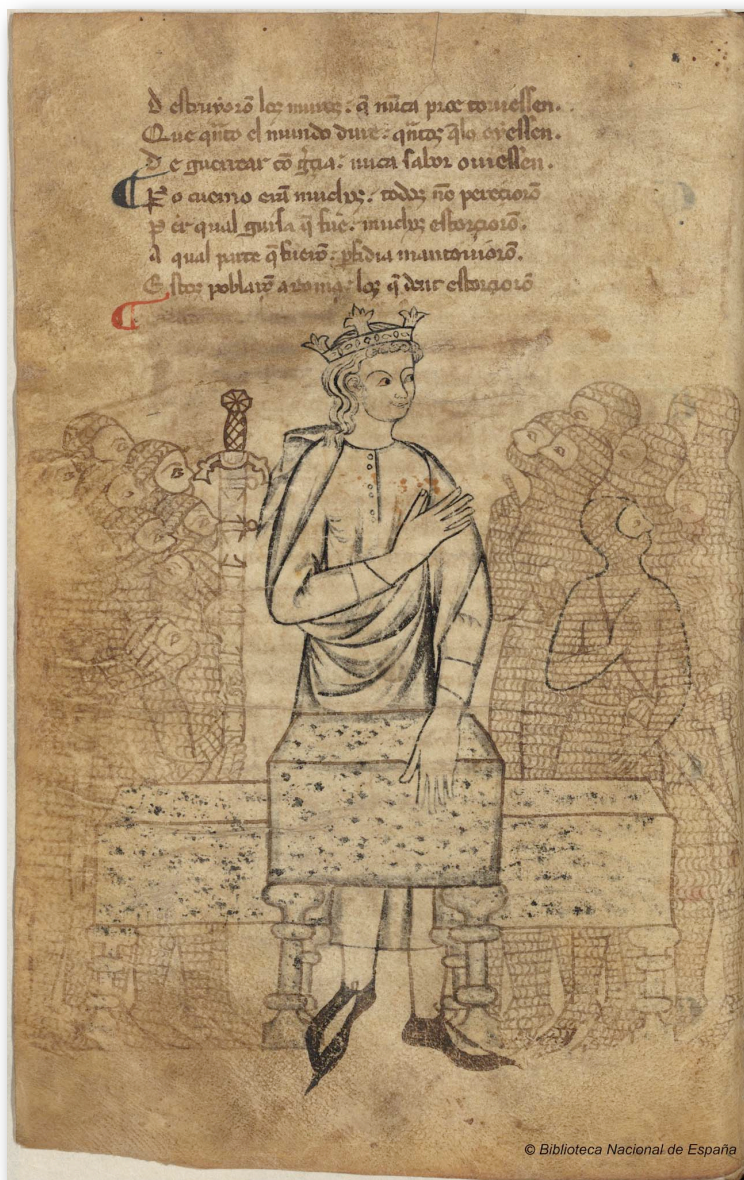 Destruyorõ los muros: q̃ nũca pros touiessen.
Que q̃nto el mundo dure: q̃ntos q̃lo oyessen.
De guerrear cõ gr̃cia: nuca sabor ouiessen.
Pero cuemo erã muchos: todos nõ pereçiorõ
Per qual guisa q̃ fue: muchos estorçiorõ.
A qual parte q̃ fuerõ: ꝑfidia mantouiorõ.
Estos poblarõ a roma: los q̃ dent estorçiorõ
© Biblioteca Nacional de España